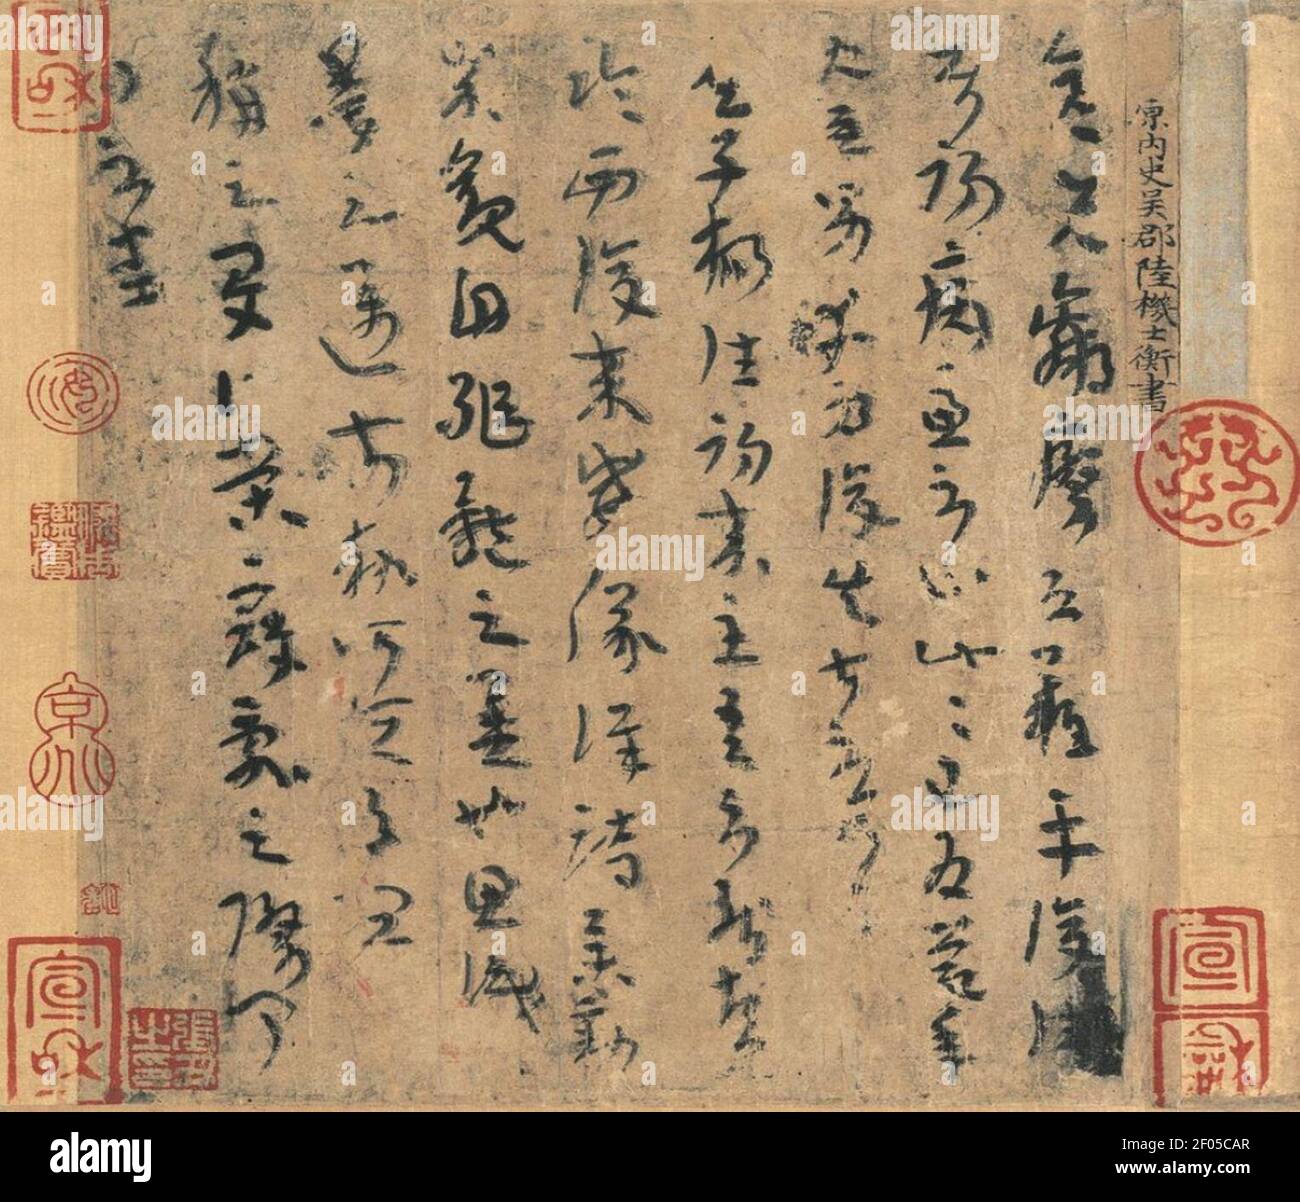 晉內史吳郡陸機士衡書
彥先羸瘵恐難平復往屬
初病慮不止此此已為慶承
使唯男幸為復失前憂耳
吳子楊往初來主吾不能盡
臨西復來威儀詳跱舉動
成觀自軀體之美也思識
量之邁前執所恆有宜
稱之夏伯榮寇亂之際聞
問不悉
宣和
alamy
Image ID: 2F05CAR
www.alamy.com